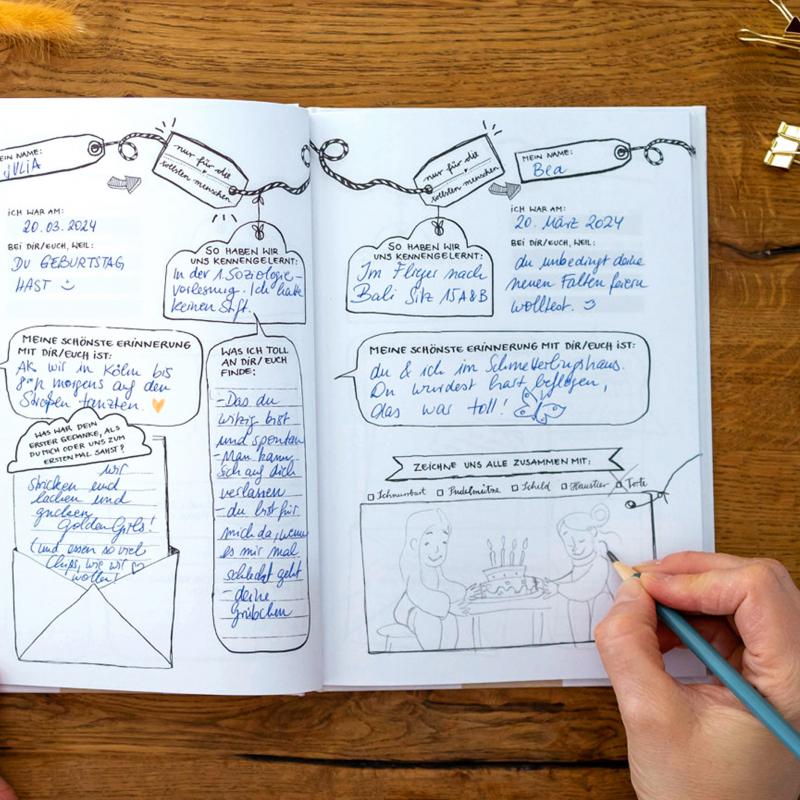 EIN NAME:
JULIA
nur für die
tollsten menschen
ICH WAR AM:
20.03.2024
BEI DIR/EUCH, WEIL:
DU GEBURTSTAG
HAST
SO HABEN WIR
UNS KENNENGELERNT:
In der 1. Soziologie-
vorlesung. Ich hatte
keinen Stift.
MEINE SCHÖNSTE ERINNERUNG
MIT DIR/EUCH IST:
Als wir in Köln bis
morgens auf den
Straßen tanzten.
WAS ICH TOLL
AN DIR/EUCH
FINDE:
-Das du
witzig bist
und spontan
-Man kann
sich auf dich
verlassen
-du bist für
mich da, wenn
es mir mal
schlecht geht
-deine
Grübchen
WAS WAR DEIN
ERSTER GEDANKE, ALS
DU MICH ODER UNS ZUM
ERSTEN MAL SAHST?
wir
stricken und
lachen und
gucken
Golden Girls!
(und essen so viel
Chips, wie wir
wollen!
nur für die
tollsten menschen
MEIN NAME:
Bea
SO HABEN WIR
UNS KENNENGELERNT:
Im Flieger nach
Bali Sitz 15A&B
ICH WAR AM:
20. März 2024
BEI DIR/EUCH, WEIL:
du unbedingt deine
neuen Falten feiern
wolltest.
MEINE SCHÖNSTE ERINNERUNG MIT DIR/EUCH IST:
du & ich im Schmetterlingshaus.
Du wurdest hart beflogen,
das war toll!
ZEICHNE UNS ALLE ZUSAMMEN MIT:
Schnurrbart Pudelmütze Schild Haustier Torte